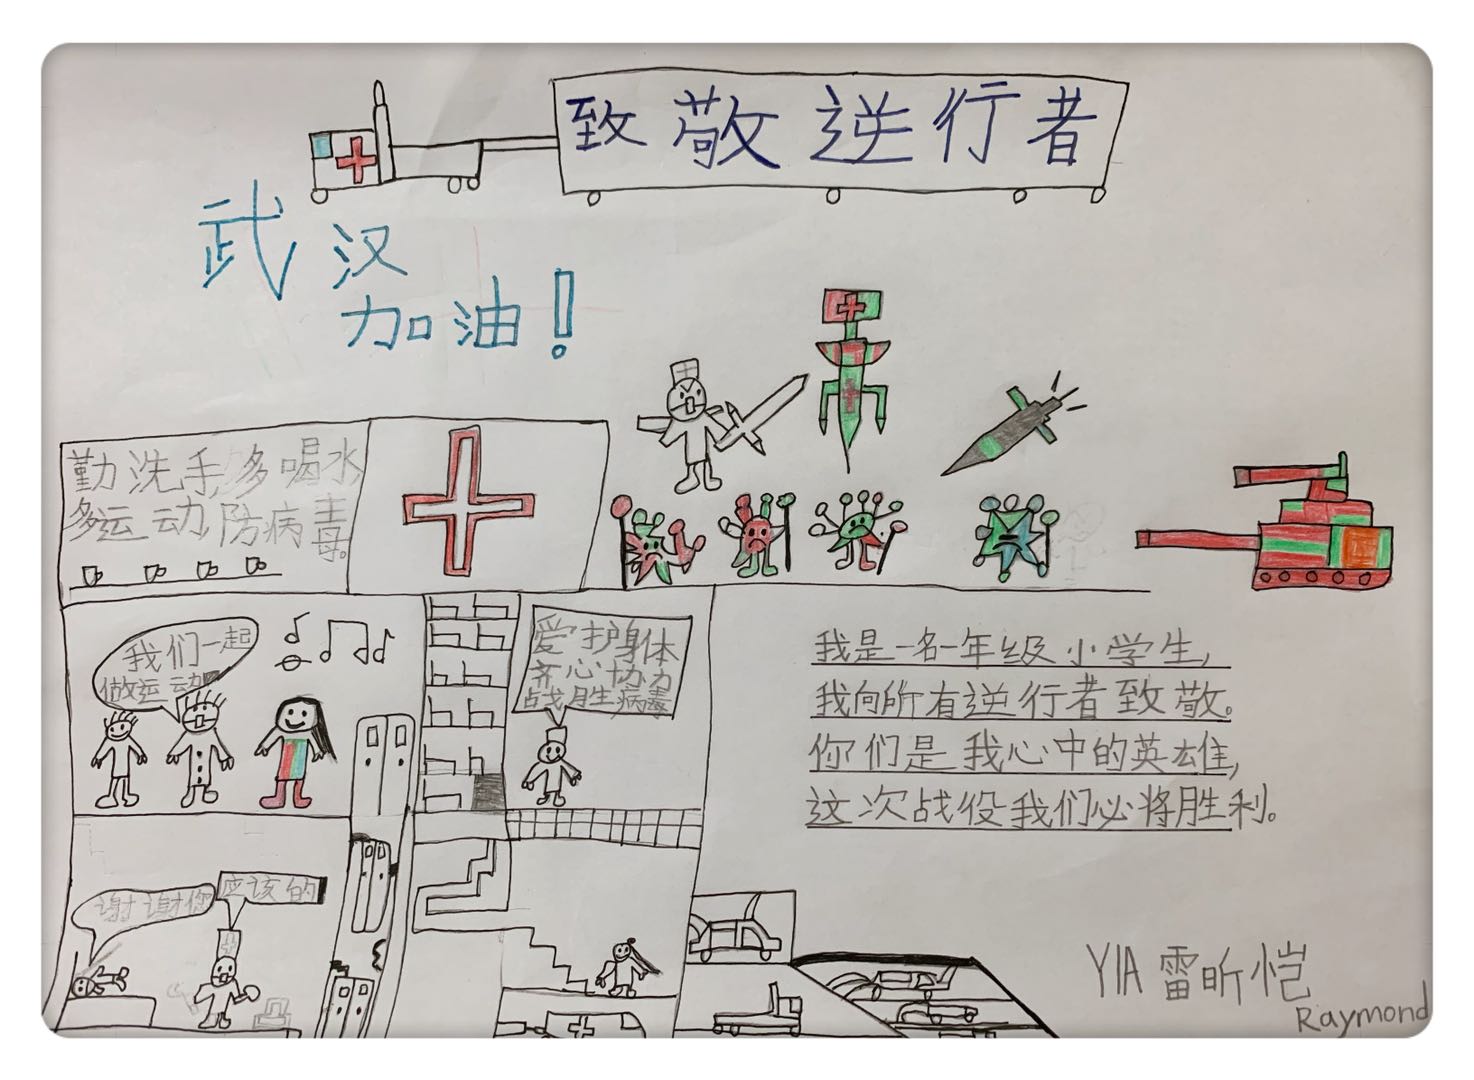 致敬逆行者
武汉
加油!
勤洗手,多喝水,
多运动,防病毒。
我们一起
做运动
爱护身体
齐心协力
战胜病毒
谢谢你
应该的
我是一名一年级小学生,
我向所有逆行者致敬。
你们是我心中的英雄,
这次战役我们必将胜利。
Y1A 雷昕恺
Raymond